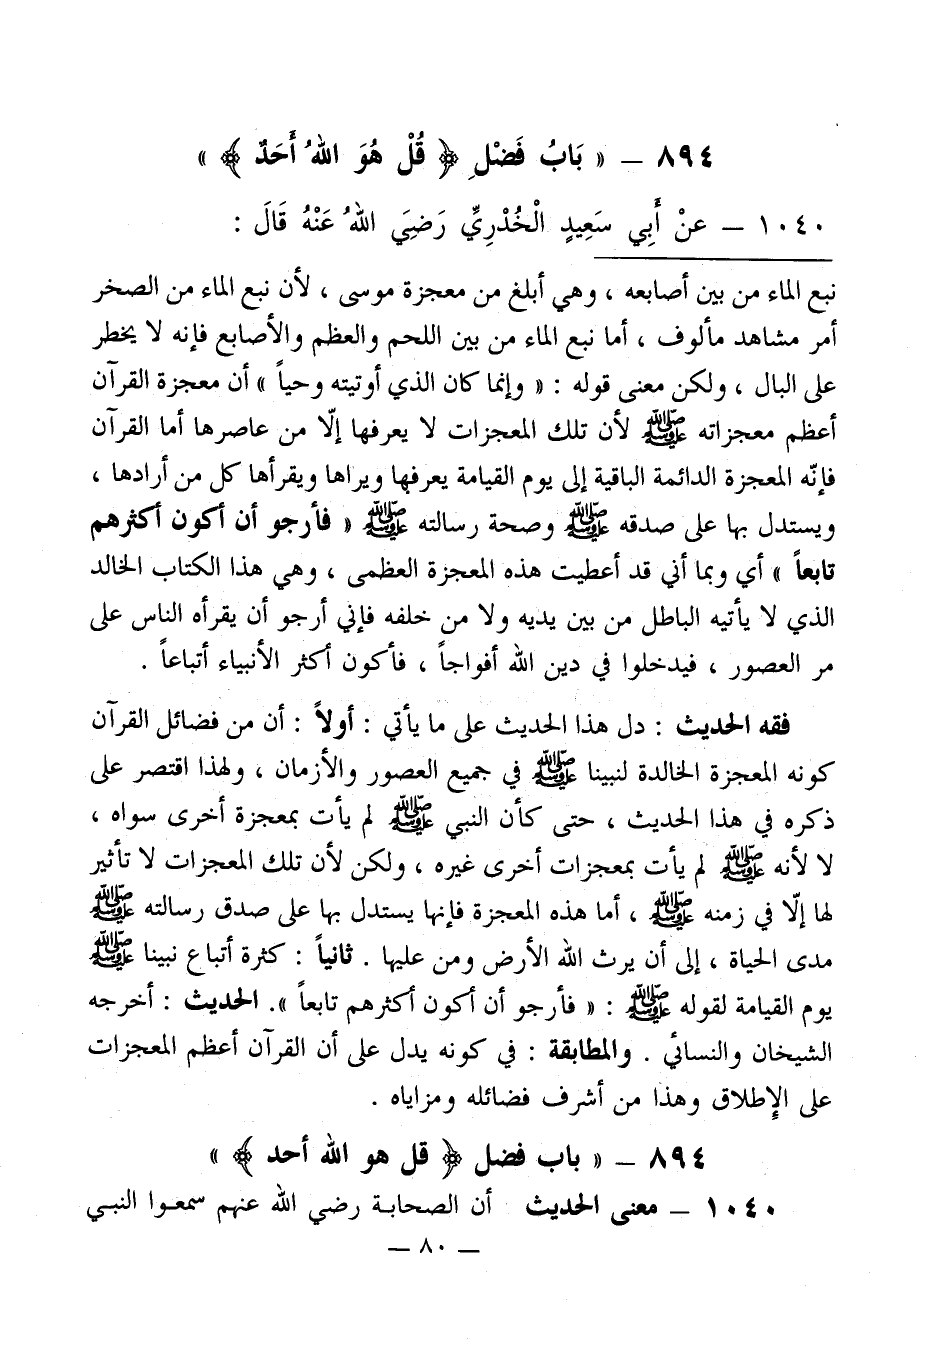 ٨٩٤ – « بَابُ فَضْلِ ﴿ قُلْ هُوَ اللهُ أَحَدٌ ﴾ »
١٠٤٠ – عنْ أَبِي سَعِيدٍ الْخُدْرِيِّ رَضِيَ اللهُ عَنْهُ قَالَ :
نبع الماء من بين أصابعه ، وهي أبلغ من معجزة موسى ، لأن نبع الماء من الصخر
أمر مشاهد مألوف ، أما نبع الماء من بين اللحم والعظم والأصابع فإنه لا يخطر
على البال ، ولكن معنى قوله : « وإنما كان الذي أوتيته وحياً » أن معجزة القرآن
أعظم معجزاته ﷺ لأن تلك المعجزات لا يعرفها إلّا من عاصرها أما القرآن
فإنّه المعجزة الدائمة الباقية إلى يوم القيامة يعرفها ويراها ويقرأها كل من أرادها ،
ويستدل بها على صدقه ﷺ وصحة رسالته ﷺ « فأرجو أن أكون أكثرهم
تابعاً » أي وبما أني قد أعطيت هذه المعجزة العظمى ، وهي هذا الكتاب الخالد
الذي لا يأتيه الباطل من بين يديه ولا من خلفه فإني أرجو أن يقرأه الناس على
مر العصور ، فيدخلوا في دين الله أفواجاً ، فأكون أكثر الأنبياء أتباعاً .
فقه الحديث : دل هذا الحديث على ما يأتي : أولاً : أن من فضائل القرآن
كونه المعجزة الخالدة لنبينا ﷺ في جميع العصور والأزمان ، ولهذا اقتصر على
ذكره في هذا الحديث ، حتى كأن النبي ﷺ لم يأت بمعجزة أخرى سواه ،
لا لأنه ﷺ لم يأت بمعجزات أخرى غيره ، ولكن لأن تلك المعجزات لا تأثير
لها إلّا في زمنه ﷺ ، أما هذه المعجزة فإنها يستدل بها على صدق رسالته ﷺ
مدى الحياة ، إلى أن يرث الله الأرض ومن عليها . ثانياً : كثرة أتباع نبينا ﷺ
يوم القيامة لقوله ﷺ : « فأرجو أن أكون أكثرهم تابعاً ». الحديث : أخرجه
الشيخان والنسائي . والمطابقة : في كونه يدل على أن القرآن أعظم المعجزات
على الإطلاق وهذا من أشرف فضائله ومزاياه .
٨٩٤ – « باب فضل ﴿ قل هو الله أحد ﴾ »
١٠٤٠ – معنى الحديث أن الصحابة رضي الله عنهم سمعوا النبي
– ٨٠ –